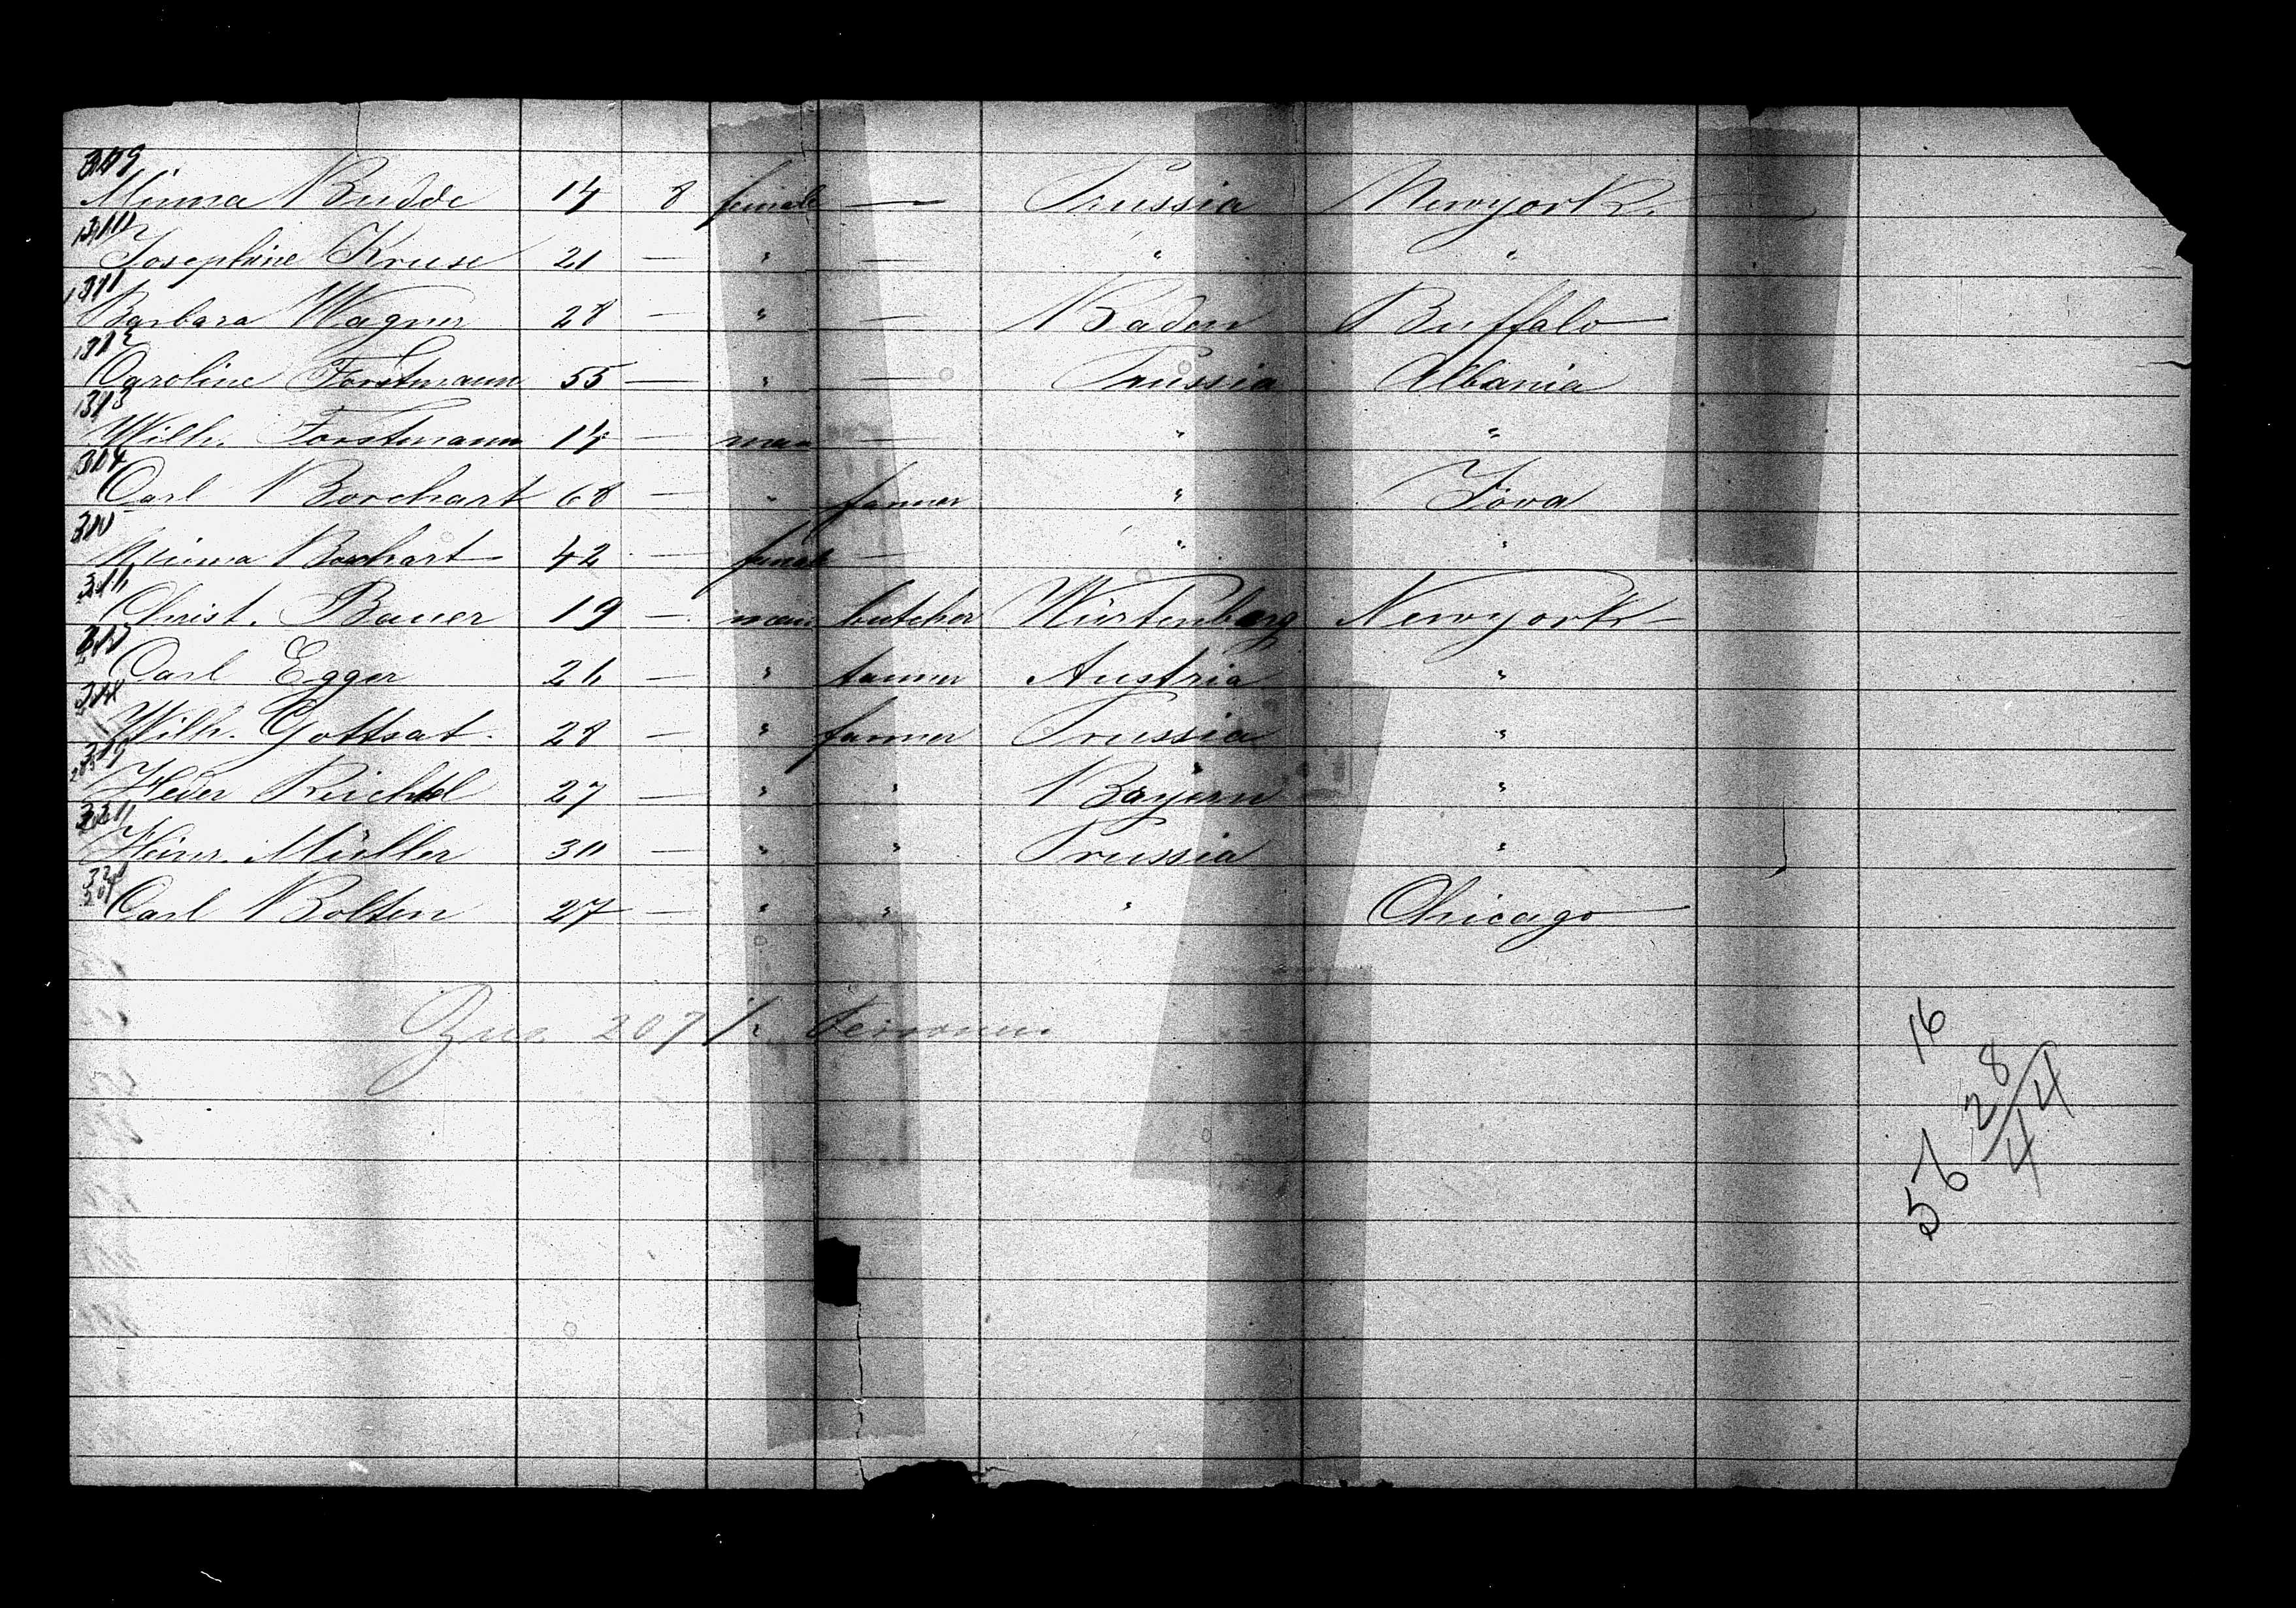 309
Minna Budde 14 8 female — Prussia Newyork.
310
Josephine Kruse 21 — " — " "
311
Barbara Wagner 28 — " — Baden Buffalo
312
Caroline Forstmann 55 — " — Prussia Albania
313
Wilh. Forstmann 14 — man — " "
314
Carl Borchart 68 — " farmer " Iova
Minna Borchart 42 — female — " "
316
Christ. Bauer 19 — man butcher Würtenberg Newyork
317
Carl Egger 26 — " tanner Austria "
318
Wilh. Gottsat. 28 — " farmer Prussia "
319
Reichel 27 — " " Bayern "
320
Heinr. Müller 30 — " " Prussia "
321
Carl Bolten 27 — " " " Chicago
Zus. 207
16
28
44
56